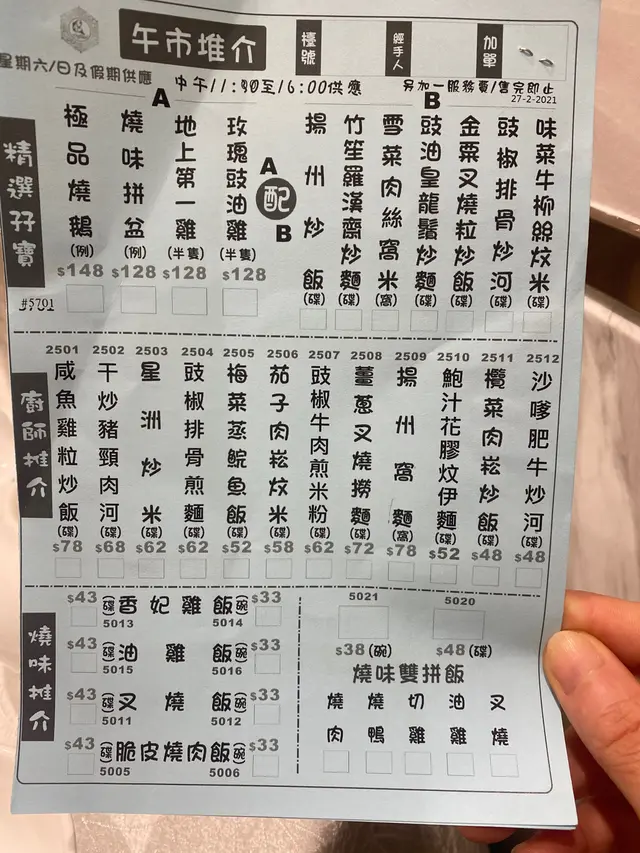 午市推介
檯號
經手人
加單
星期六/日及假期供應
中午11:30至16:00供應
另加一服務費/售完即止
27-2-2021
精選孖寶
A
極品燒鵝(例)
$148
燒味拼盆(例)
$128
地上第一雞(半隻)
$128
玫瑰豉油雞(半隻)
$128
#5701
A
配
B
B
揚州炒飯(碟)
竹笙羅漢齋炒麵(碟)
雪菜肉絲窩米(窩)
豉油皇龍鬚炒麵(碟)
金粟叉燒粒炒飯(碟)
豉椒排骨炒河(碟)
味菜牛柳絲炆米(碟)
廚師推介
2501
咸魚雞粒炒飯(碟)
$78
2502
干炒豬頸肉河(碟)
$68
2503
星洲炒米(碟)
$62
2504
豉椒排骨煎麵(碟)
$62
2505
梅菜蒸鯇魚飯(碟)
$52
2506
茄子肉崧炆米(碟)
$58
2507
豉椒牛肉煎米粉(碟)
$62
2508
薑蔥叉燒撈麵(碟)
$72
2509
揚州窩麵(窩)
$78
2510
鮑汁花膠炆伊麵(碟)
$52
2511
欖菜肉崧炒飯(碟)
$48
2512
沙嗲肥牛炒河(碟)
$48
燒味推介
$43 (碟) 香妃雞飯 (碗) $33
5013 5014
$43 (碟) 油雞飯 (碗) $33
5015 5016
$43 (碟) 叉燒飯 (碗) $33
5011 5012
$43 (碟) 脆皮燒肉飯 (碗) $33
5005 5006
5021 5020
$38 (碗) $48 (碟)
燒味雙拼飯
燒肉
燒鴨
切雞
油雞
叉燒